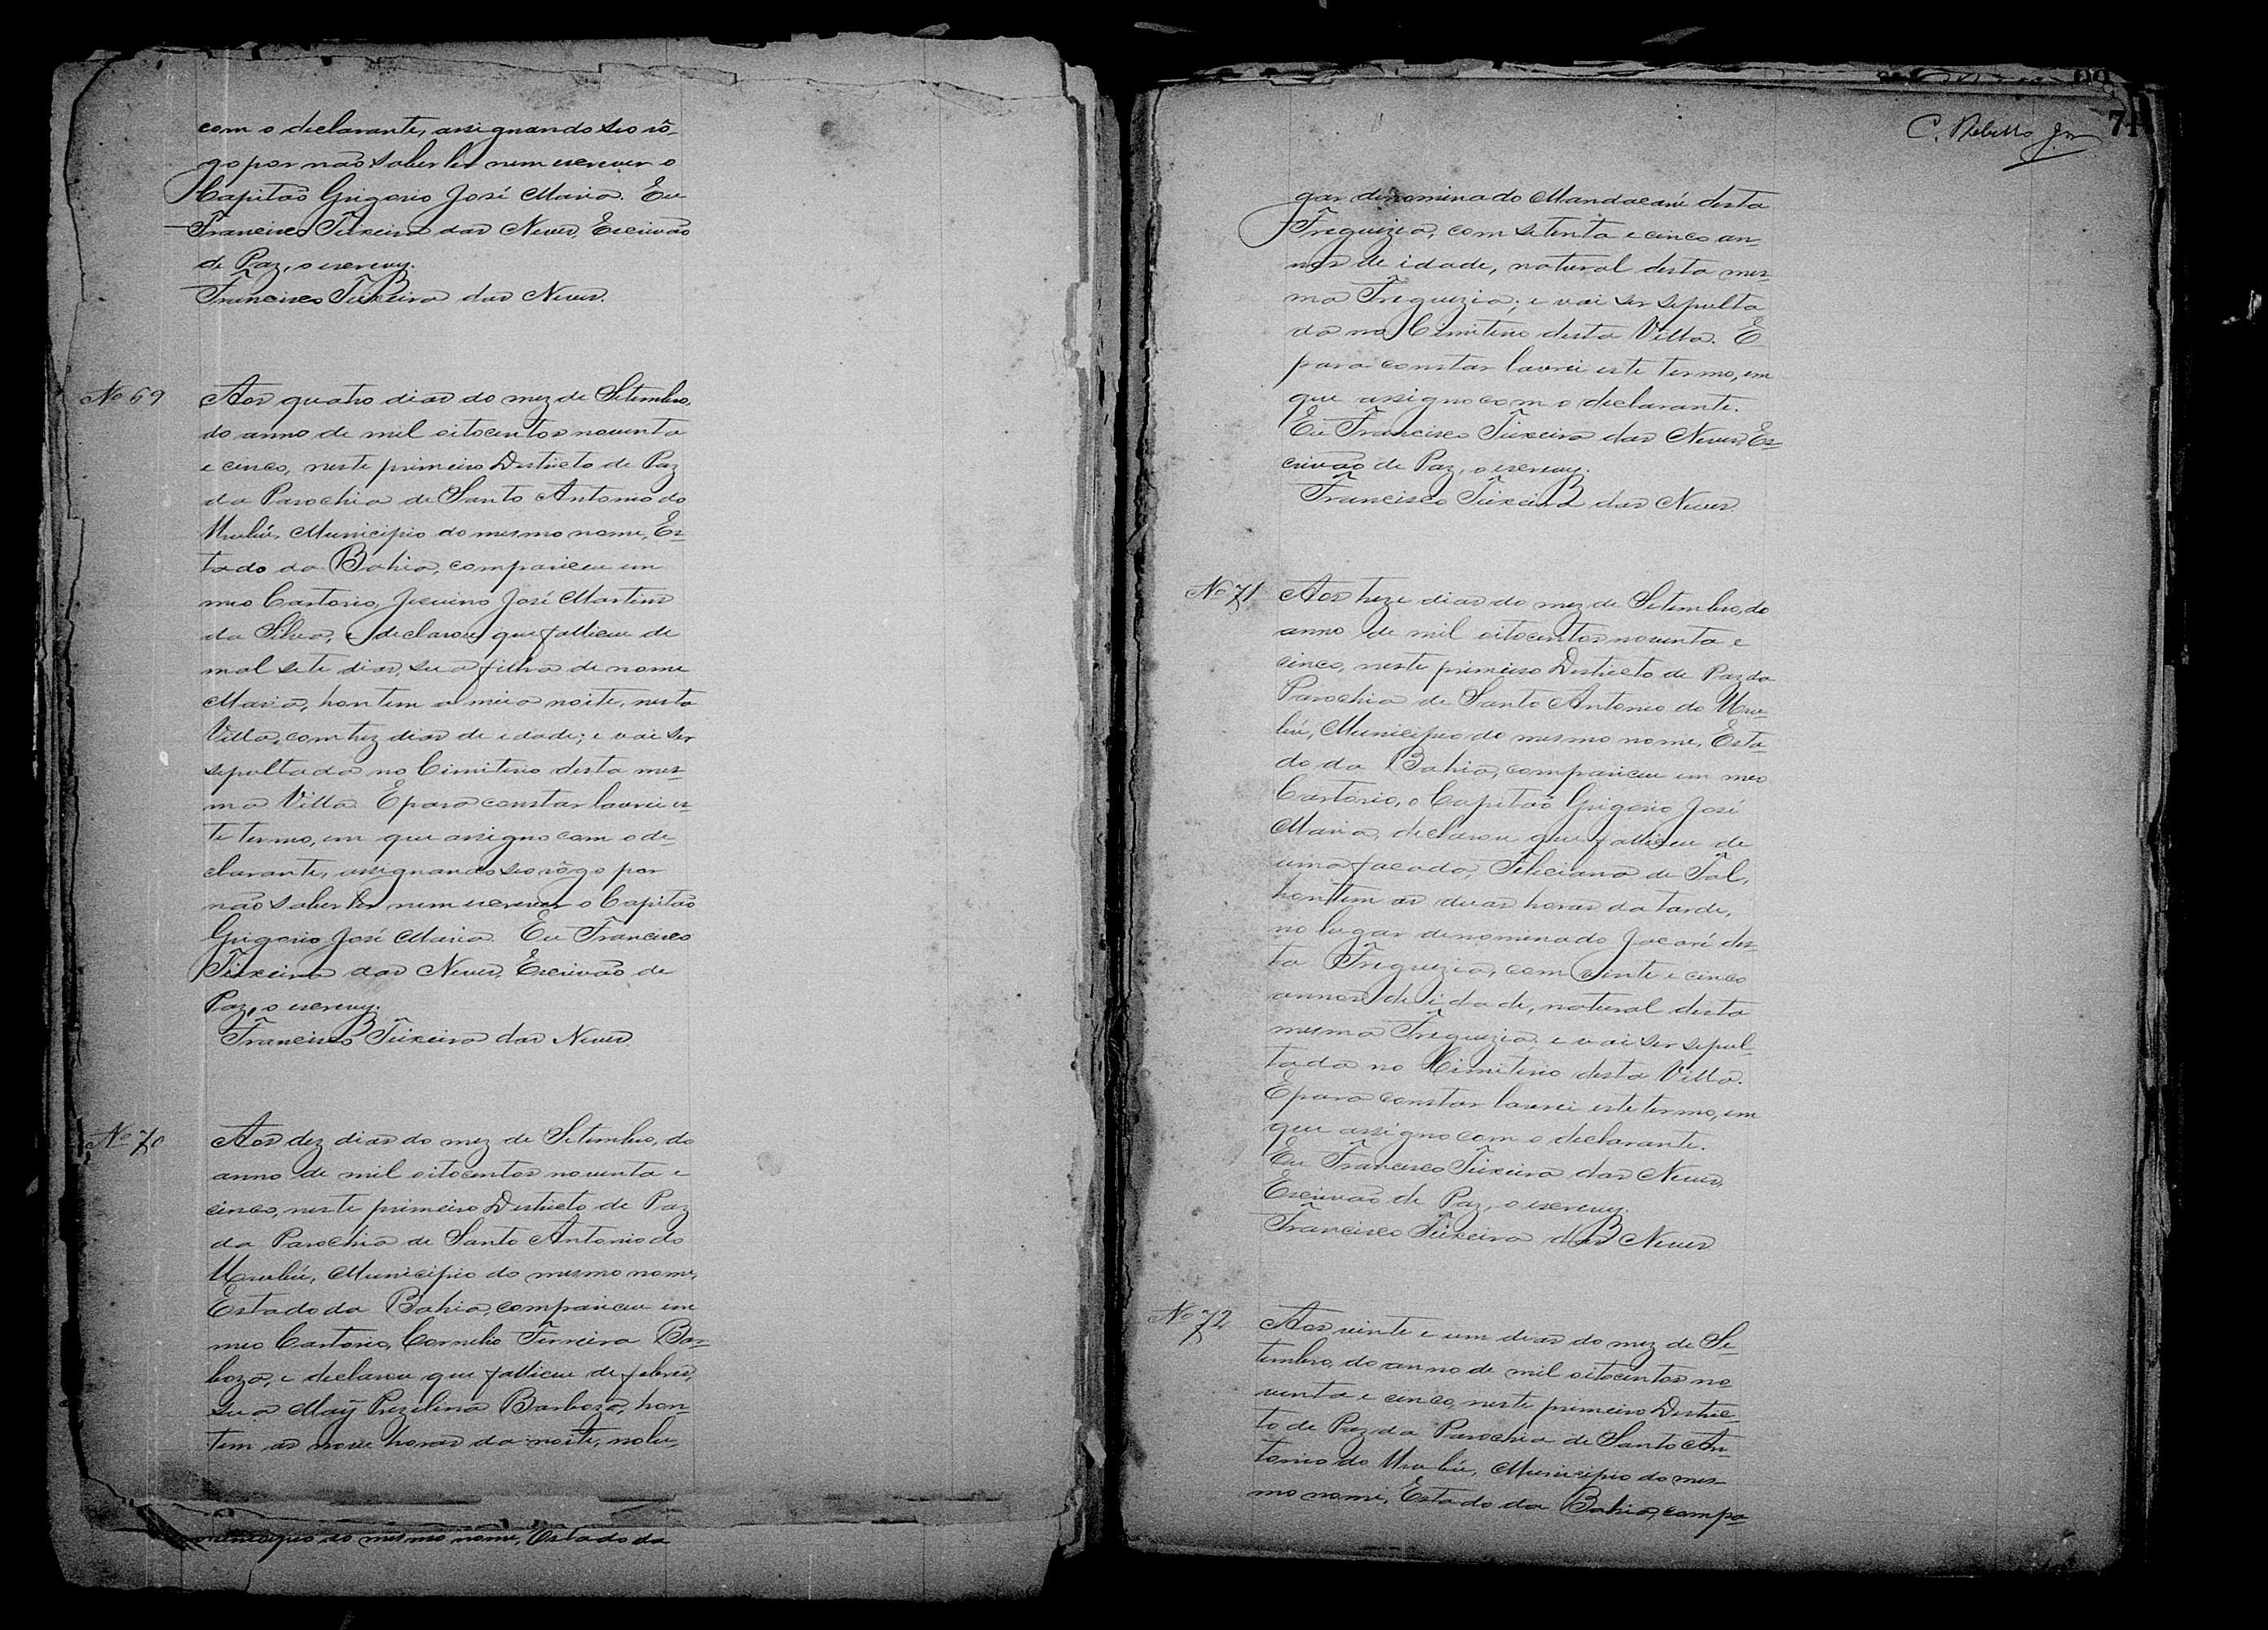 com o declarante, assignando seo rô-
go por não saber ler nem escrever o
Capitão Grigorio José Maria. Eu
Francisco Teixeira das Neves, Escrivão
de Paz, o escrevy.
Francisco Teixeira das Neves.
No 69
Aos quatro dias do mez de Setembro,
do anno de mil oitocentos noventa
e cinco, neste primeiro Districto de Paz
da Parochia de Santo Antonio do
Urubú, Municipio do mesmo nome, Es-
tado da Bahia, compareceu em
meo Cartorio, Jesuino José Martins
da Silva, e declarou que falleceu de
mal sete dias, sua filha de nome
Maria, hontem a meia noite, nesta
Villa, com trez dias de idade; e vai ser
sepultada no Cimiterio desta mes-
ma Villa. E para constar lavrei es-
te termo, em que assigno com o de-
clarante, assignando seo rôgo por
não saber ler nem escrever o Capitão
Grigorio José Maria. Eu Francisco
Teixeira das Neves, Escrivão de
Paz, o escrevy.
Francisco Teixeira das Neves.
No 70
Aos dez dias do mez de Setembro, do
anno de mil oitocentos noventa e
cinco, neste primeiro Districto de Paz
da Parochia de Santo Antonio do
Urubú, Municipio do mesmo nome,
Estado da Bahia, compareceu em
meo Cartorio, Cornelio Ferreira Bar-
boza, e declarou que falleceu de febres,
sua Maÿ Prezelina Barboza, hon-
tem as nove horas da noite, no lu-
municipio do mesmo nome, Estado da
C. Rebello Jor
71
gar denominado Mandacarú desta
Freguizia, com setenta e cinco an-
nos de idade, natural desta mes-
ma Freguizia; e vai ser sepulta
da no Cimiterio desta Villa. E
para constar lavrei este termo, em
que assigno com o declarante.
Eu Francisco Teixeira das Neves, Es-
crivão de Paz, o escrevy.
Francisco Teixeira das Neves
No 71
Aos treze dias do mez de Setembro, do
anno de mil oitocentos noventa e
cinco, neste primeiro Districto de Paz da
Parochia de Santo Antonio do Uru-
bú, Municipio do mesmo nome, Esta-
do da Bahia, compareceu em meo
Cartorio, o Capitão Grigorio José
Maria, declarou que falleceu de
uma facada, Feliciana de Tal,
hontem as duas horas da tarde,
no lugar denominado Jacaré des-
ta Freguizia, com vinte e cinco
annos de idade, natural desta
mesma Freguizia; e vai ser sepul-
tada no Cimiterio desta Villa.
E para constar lavrei este termo, em
que assigno com o declarante.
Eu Francisco Teixeira das Neves,
Escrivão de Paz, o escrevy.
Francisco Teixeira das Neves
No 72
Aos vinte e um dias do mez de Se-
tembro, do anno de mil oitocentos no-
venta e cinco, neste primeiro Distric-
to de Paz da Parochia de Santo An-
tonio do Urubú, Municipio do mes-
mo nome, Estado da Bahia, compa-